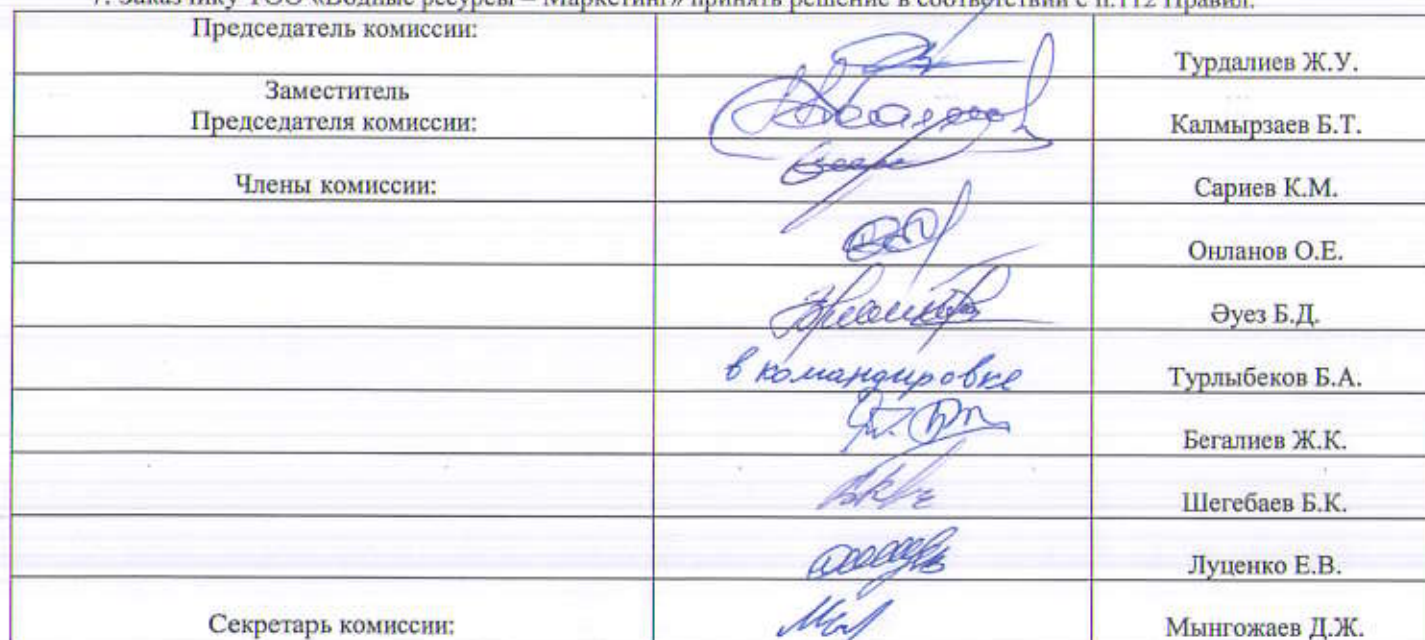 7. Заказчику ТОО «Водные ресурсы – Маркетинг» принять решение в соответствии с п.112 Правил.
Председатель комиссии:
Турдалиев Ж.У.
Заместитель
Председателя комиссии:
Калмырзаев Б.Т.
Члены комиссии:
Сариев К.М.
Онланов О.Е.
Әуез Б.Д.
в командировке
Турлыбеков Б.А.
Бегалиев Ж.К.
Шегебаев Б.К.
Луценко Е.В.
Секретарь комиссии:
Мынгожаев Д.Ж.